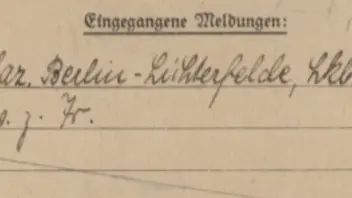 Eingegangene Meldungen:
laz. Berlin-Lichterfelde, Lkb
z. Fr.